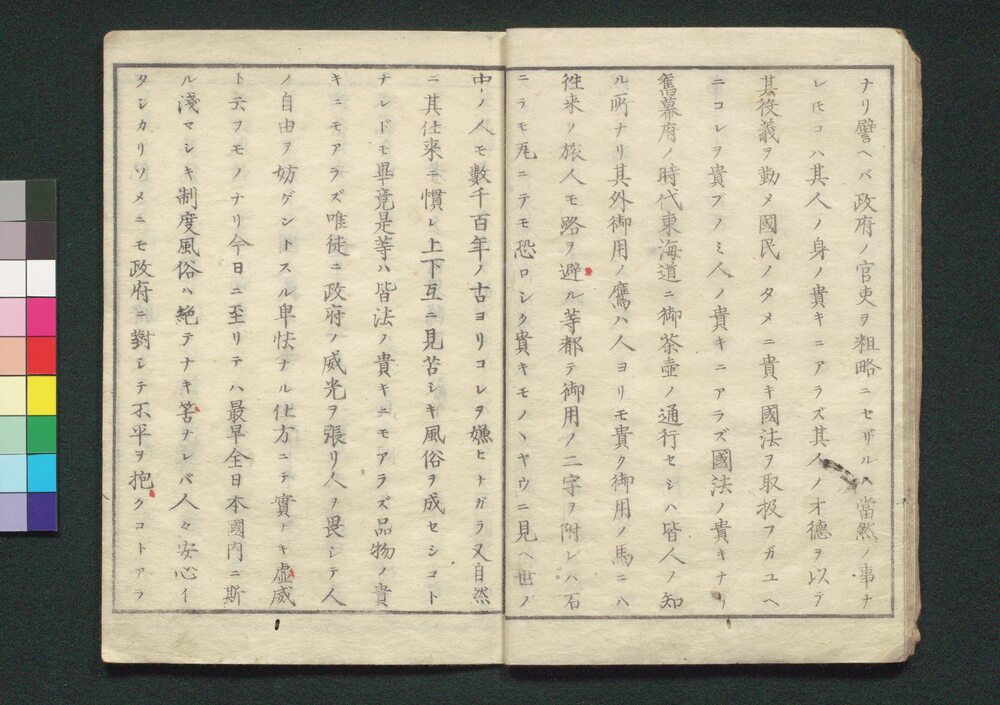 ナリ譬ヘバ政府ノ官吏ヲ粗略ニセザルハ當然ノ事ナ
レ𪜈コハ其人ノ身ノ貴キニアラズ其人ノ才德ヲ以テ
其役義ヲ勤メ國民ノタメニ貴キ國法ヲ取扱フガユヘ
ニコレヲ貴ブノミ人ノ貴キニアラズ國法ノ貴キナリ
舊幕府ノ時代東海道ニ御茶壷ノ通行セシハ皆人ノ知
ル所ナリ其外御用ノ鷹ハ人ヨリモ貴ク御用ノ馬ニハ
徃来ノ旅人モ路ヲ避ル等都テ御用ノ二字ヲ附レハ石
ニテモ瓦ニテモ恐ロシク貴キモノヽヤウニ見ヘ世ノ
中ノ人モ數千百年ノ古ヨリコレヲ嫌ヒナガラ又自然
ニ其仕來ニ慣レ上下互ニ見苦シキ風俗ヲ成セシコト
ナレドモ畢竟是等ハ皆法ノ貴キニモアラズ品物ノ貴
キニモアラズ唯徒ニ政府ノ威光ヲ張リ人ヲ畏シテ人
ノ自由ヲ妨ゲントスル卑怯ナル仕方ニテ實ナキ虚威
ト云フモノナリ今日ニ至リテハ最早全日本國内ニ斯
ル淺マシキ制度風俗ハ絶テナキ筈ナレバ人々安心イ
タシカリソメニモ政府ニ對シテ不平ヲ抱クコトアラ